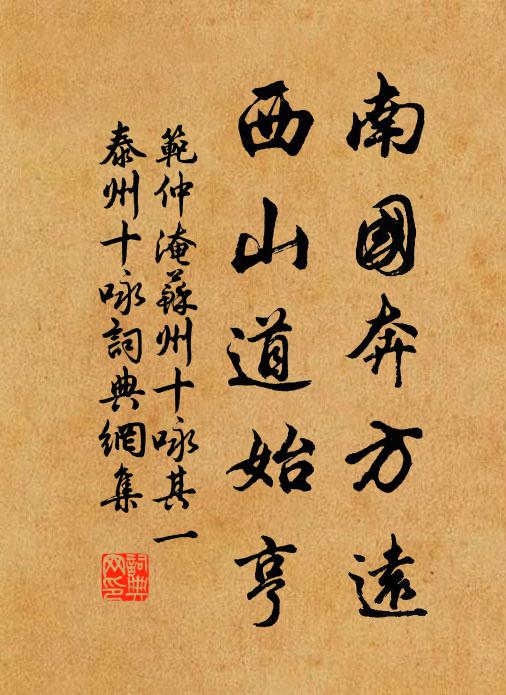 南國奔方遠
西山道始亨
範仲淹蘇州十咏其一
泰州十咏詞典網集
詞典網印